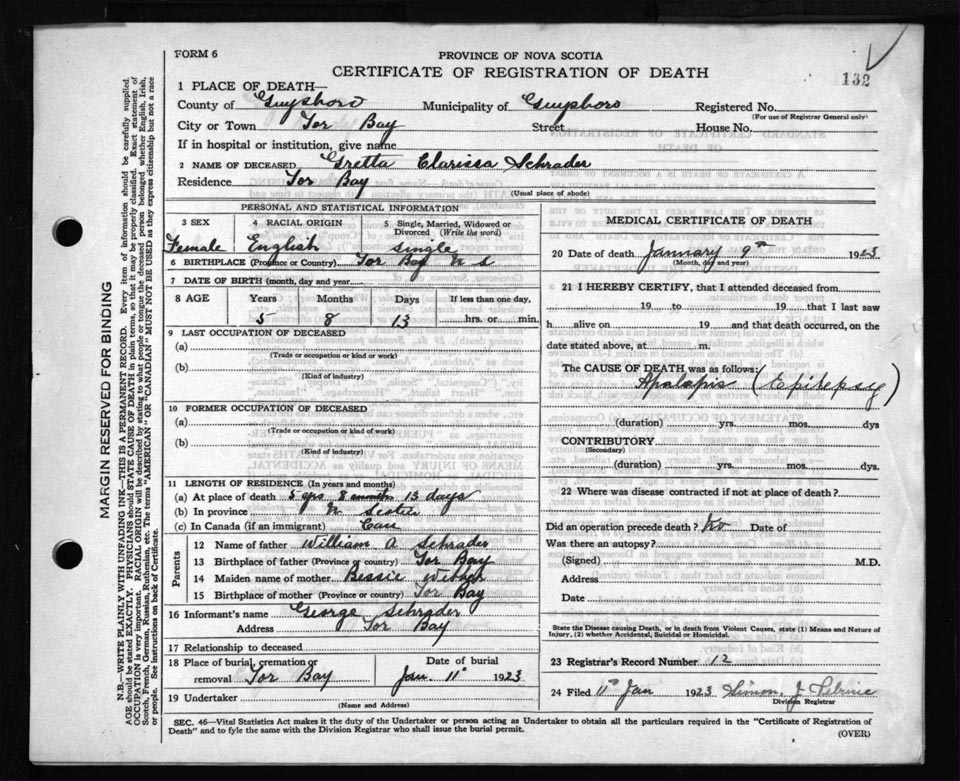 FORM 6
PROVINCE OF NOVA SCOTIA
CERTIFICATE OF REGISTRATION OF DEATH
132
1 PLACE OF DEATH—
County of Guysboro Municipality of Guysboro Registered No.
(For use of Registrar General only)
City or Town Tor Bay Street House No.
If in hospital or institution, give name
2 NAME OF DECEASED Gretta Clarissa Schrader
Residence Tor Bay
(Usual place of abode)
PERSONAL AND STATISTICAL INFORMATION
3 SEX 4 RACIAL ORIGIN 5 Single, Married, Widowed or Divorced (Write the word)
Female English single
6 BIRTHPLACE (Province or Country) Tor Bay N S
7 DATE OF BIRTH (month, day and year)
8 AGE Years Months Days If less than one day,
5 8 13 hrs. or min.
9 LAST OCCUPATION OF DECEASED
(a)
(Trade or occupation or kind of work)
(b)
(Kind of industry)
10 FORMER OCCUPATION OF DECEASED
(a)
(Trade or occupation or kind of work)
(b)
(Kind of industry)
11 LENGTH OF RESIDENCE (In years and months)
(a) At place of death 5 yrs 8 months 13 days
(b) In province N Scotia
(c) In Canada (if an immigrant) Can
Parents
12 Name of father William A Schrader
13 Birthplace of father (Province or country) Tor Bay
14 Maiden name of mother Bessie
15 Birthplace of mother (Province or country) Tor Bay
16 Informant's name George Schrader
Address Tor Bay
17 Relationship to deceased
18 Place of burial, cremation or removal Tor Bay Date of burial Jan. 11 1923
19 Undertaker
(Name and Address)
MEDICAL CERTIFICATE OF DEATH
20 Date of death January 9th 1923
(Month, day and year)
21 I HEREBY CERTIFY, that I attended deceased from
19 to 19 that I last saw
h alive on 19 and that death occurred, on the
date stated above, at m.
The CAUSE OF DEATH was as follows:
(Epilepsy)
(duration) yrs. mos. dys
CONTRIBUTORY
(Secondary)
(duration) yrs. mos. dys.
22 Where was disease contracted if not at place of death?
Did an operation precede death? No Date of
Was there an autopsy?
(Signed) M.D.
Address
Date
State the Disease causing Death, or in death from Violent Causes, state (1) Means and Nature of
Injury, (2) whether Accidental, Suicidal or Homicidal.
23 Registrar's Record Number 12
24 Filed 11th Jan 1923 Simon J
Division Registrar
SEC. 46—Vital Statistics Act makes it the duty of the Undertaker or person acting as Undertaker to obtain all the particulars required in the "Certificate of Registration of
Death" and to fyle the same with the Division Registrar who shall issue the burial permit.
(OVER)
MARGIN RESERVED FOR BINDING
N.B.—WRITE PLAINLY WITH UNFADING INK—THIS IS A PERMANENT RECORD. Every item of information should be carefully supplied.
AGE should be stated EXACTLY. PHYSICIANS should STATE CAUSE OF DEATH in plain terms, so that it may be properly classified. Exact statement of
OCCUPATION is very important. RACIAL ORIGIN will be described by stating to what people or tongue the deceased person belonged whether English, Irish,
Scotch, French, German, Russian, Ruthenian, etc. The terms "AMERICAN" OR "CANADIAN" MUST NOT BE USED as they express citizenship but not a race
or people. See instructions on back of Certificate.